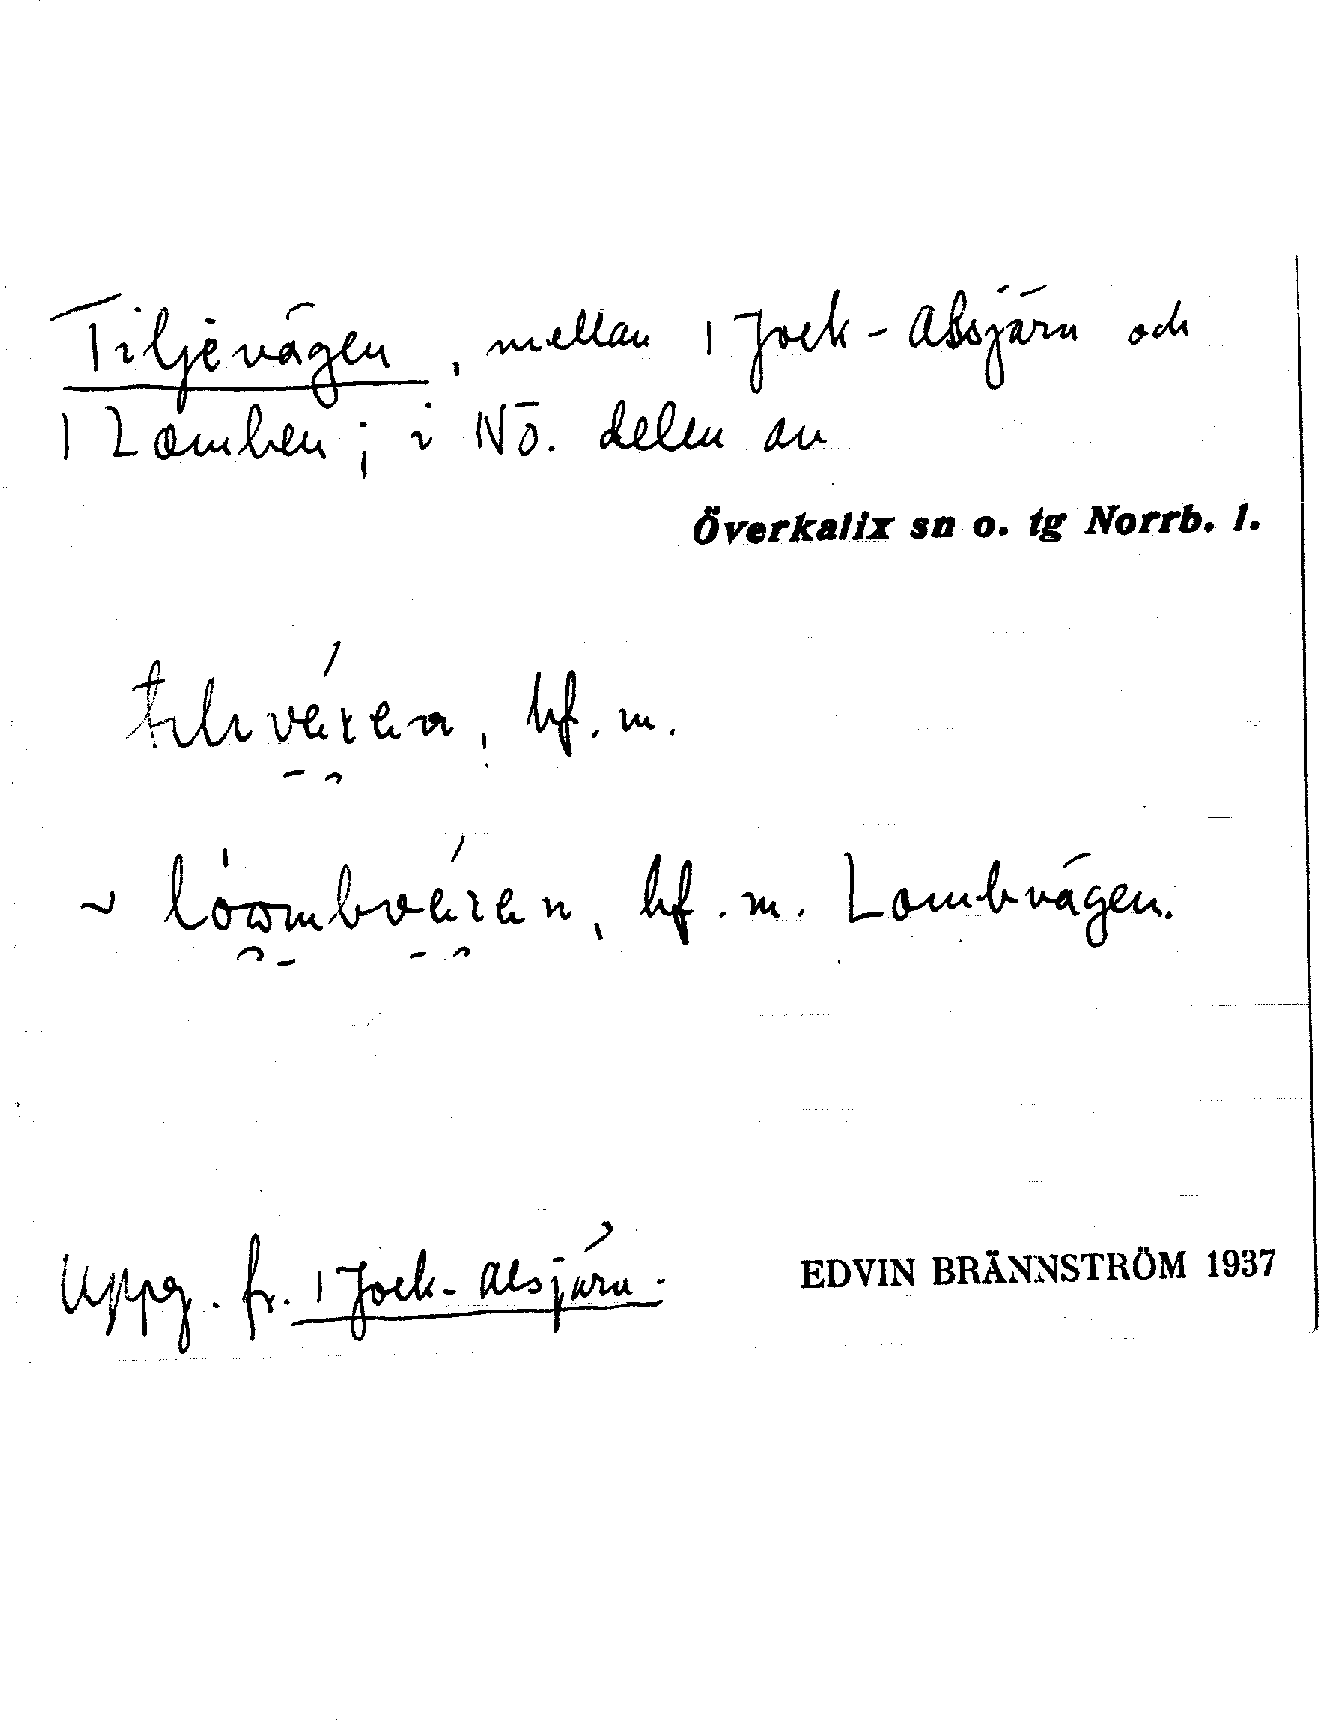 Tiljevägen, mellan | Jock-Alsjärn och
| Lomben; i NÖ. delen av
Överkalix sn o. tg Norrb. l.
bf. m.
~ bf. m. Lombvägen.
Uppg. fr. | Jock-Alsjärn.
EDVIN BRÄNNSTRÖM 1937